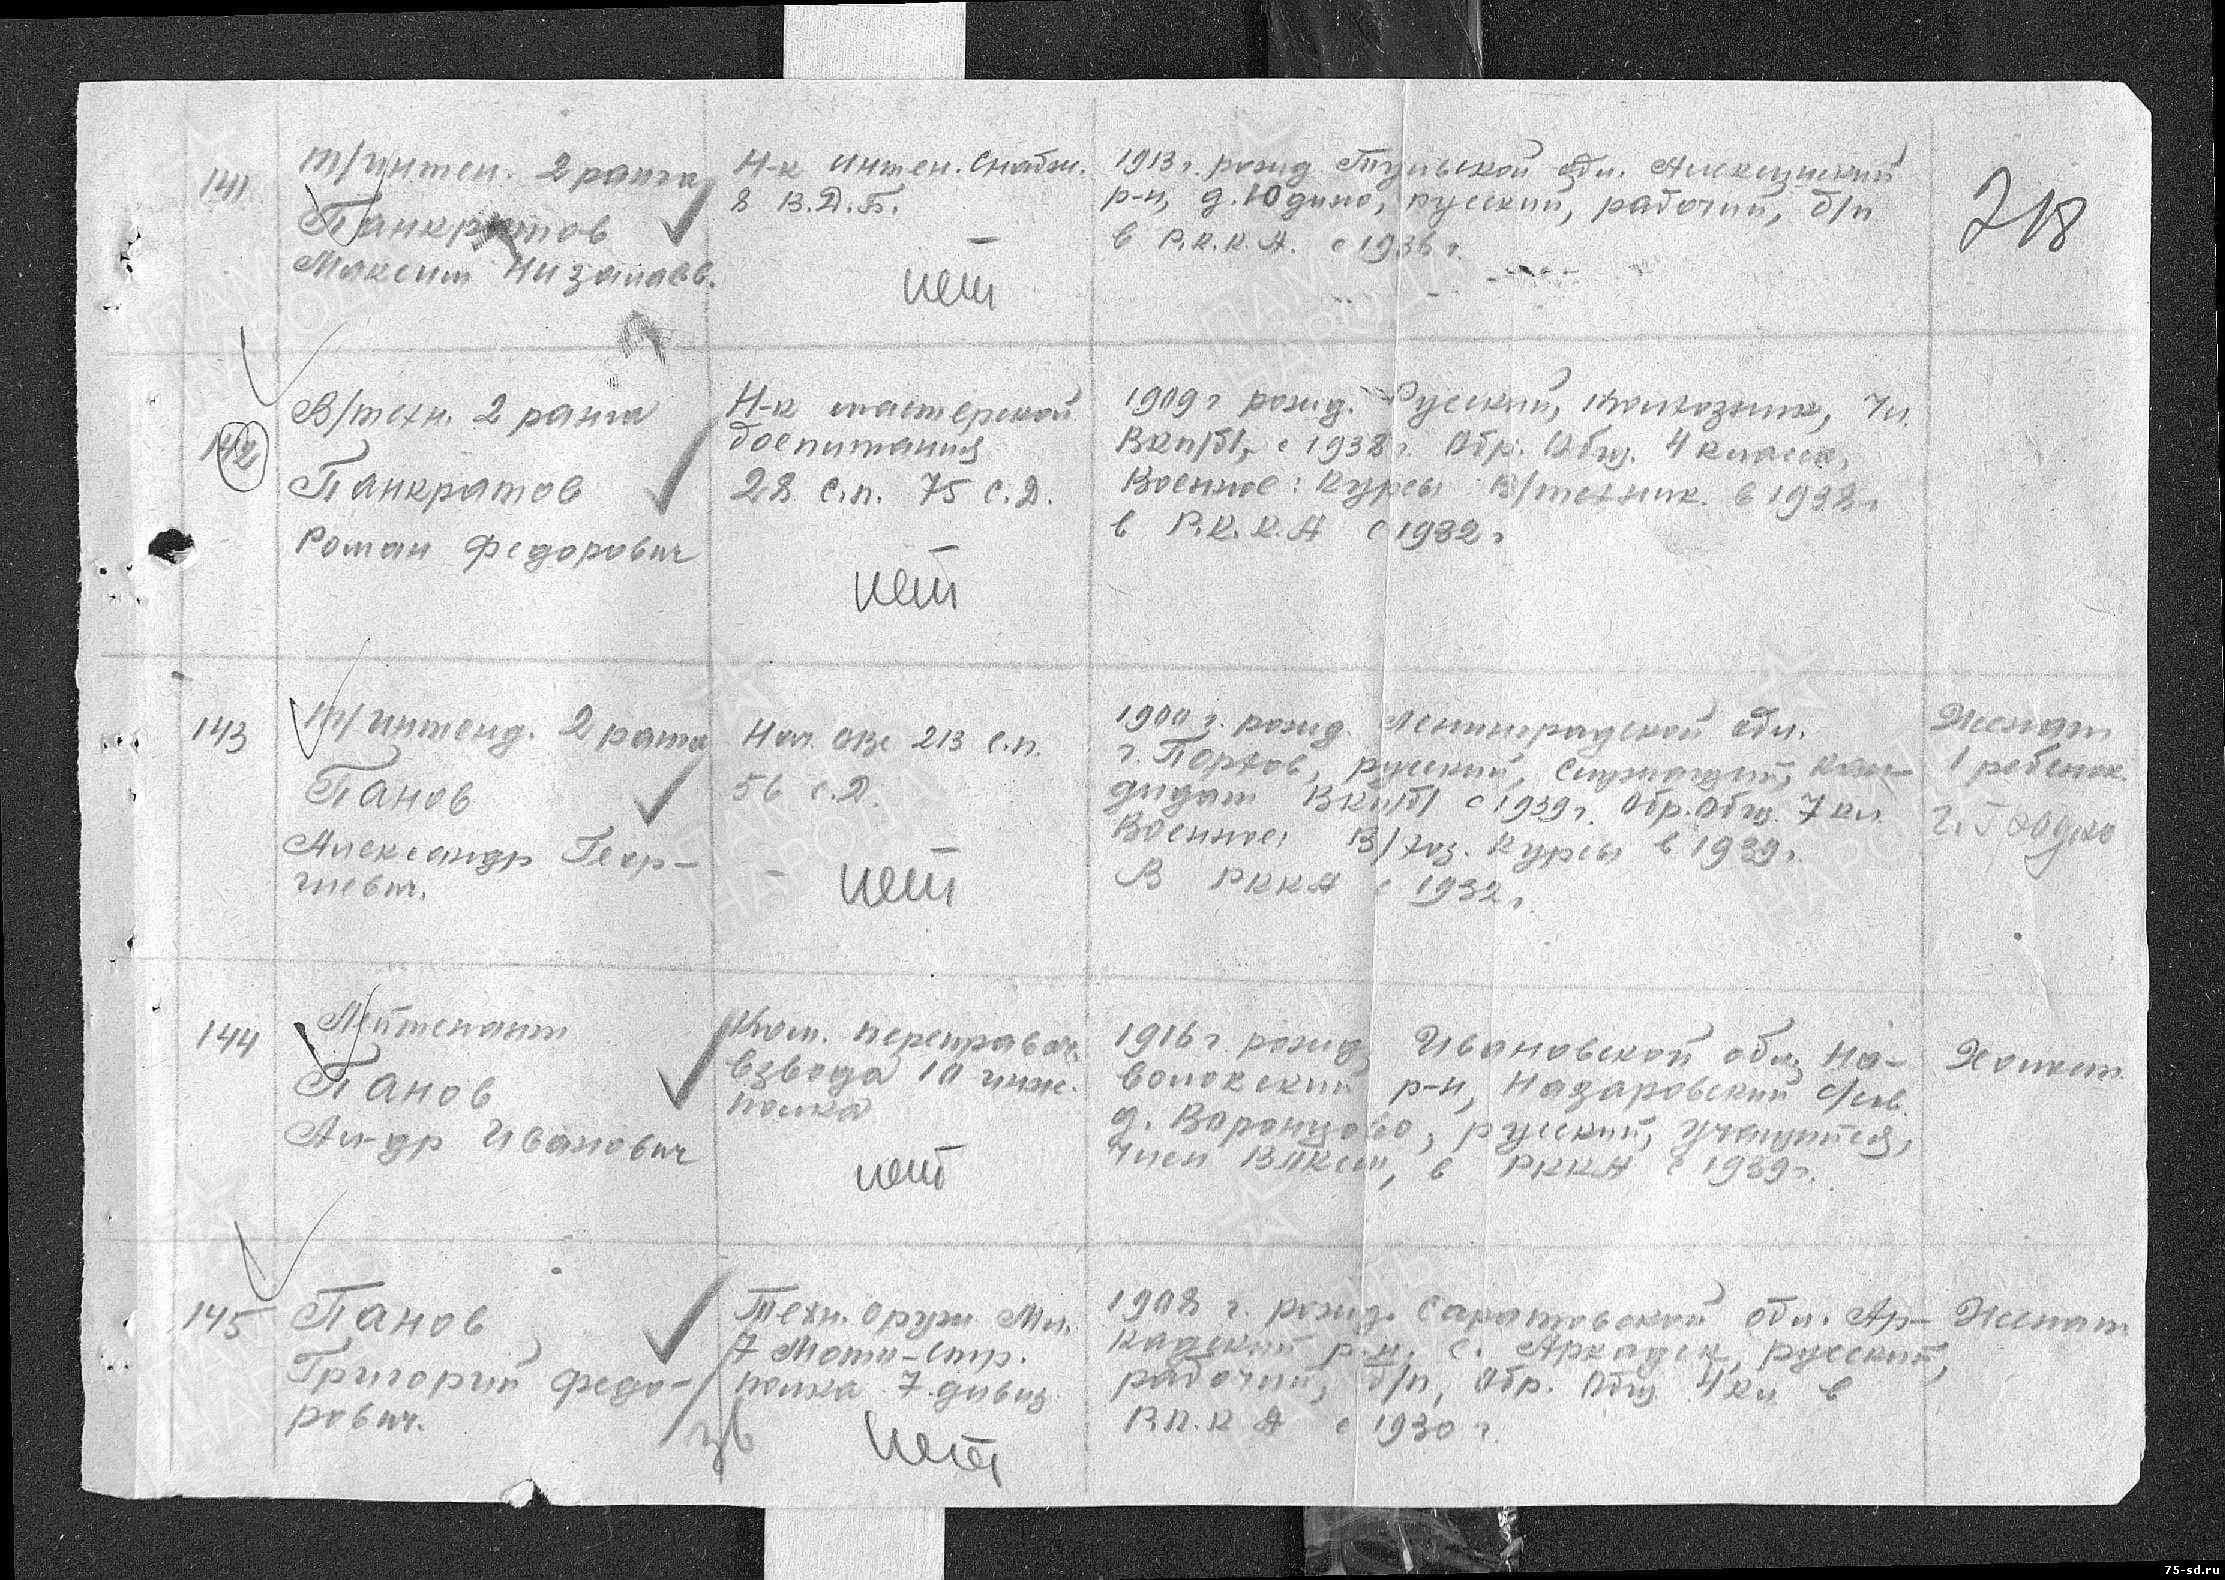 218
141
т/интен. 2 ранга
Панкратов
Максим
Н-к интен. снабж.
8 В.Д.Б.
нет
1913 г. рожд. Тульской обл. Алексинский
р-н, д. Юдино, русский, рабочий, б/п
в Р.К.К.А. с 1936 г.
142
В/техн. 2 ранга
Панкратов
Роман Федорович
Н-к мастерской
боепитания
28 с.п. 75 с.д.
нет
1909 г рожд. Русский, колхозник, чл.
ВКП/б/, с 1938 г. Обр. Общ. 4 класса,
Военное: Курсы В/техник. в 1938 г
в Р.К.К.А с 1932 г
143
т/интенд. 2 ранга
Панов
Александр Геор-
гиевич.
Нач. ОВС 213 с.п.
56 с.д.
нет
1900 г. рожд. Ленинградской обл.
г. Порхов, русский, служащий, кан-
дидат ВКП/б/ с 1939 г. Обр. Общ. 7 кл.
Военное: В/хоз. курсы в 1939 г.
В РККА с 1932 г.
Женат
1 ребенок
144
Лейтенант
Панов
Ал-др Иванович
Ком. переправоч.
взвода 10 инж.
полка
нет
1916 г. рожд, Ивановской обл, На-
волокский р-н, Назаровский с/сов.
д. Воронцово, русский, учащийся,
член ВЛКСМ, в РККА с 1939 г.
Холост.
145
Панов
Григорий Федо-
рович.
Техн. оруж Мл.
7 Мото-стр.
полка 7 дивиз
нет
1908 г. рожд. Саратовской обл. Ар-
кадский р-н. с. Аркадск, русский,
рабочий, б/п, Обр. Общ 4 кл в
Р.К.К.А с 1930 г.
Женат
75-sd.ru